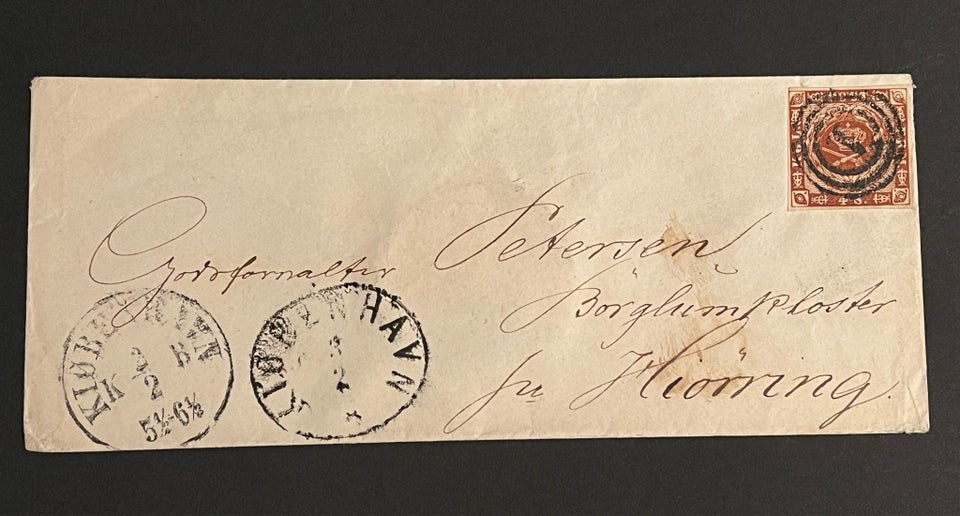 4 S.
1
Godsforvalter Petersen
Börglumkloster
pr Hiörring.
KIØBENHAVN
K B
2
5½-6½
KIØBENHAVN
3
2